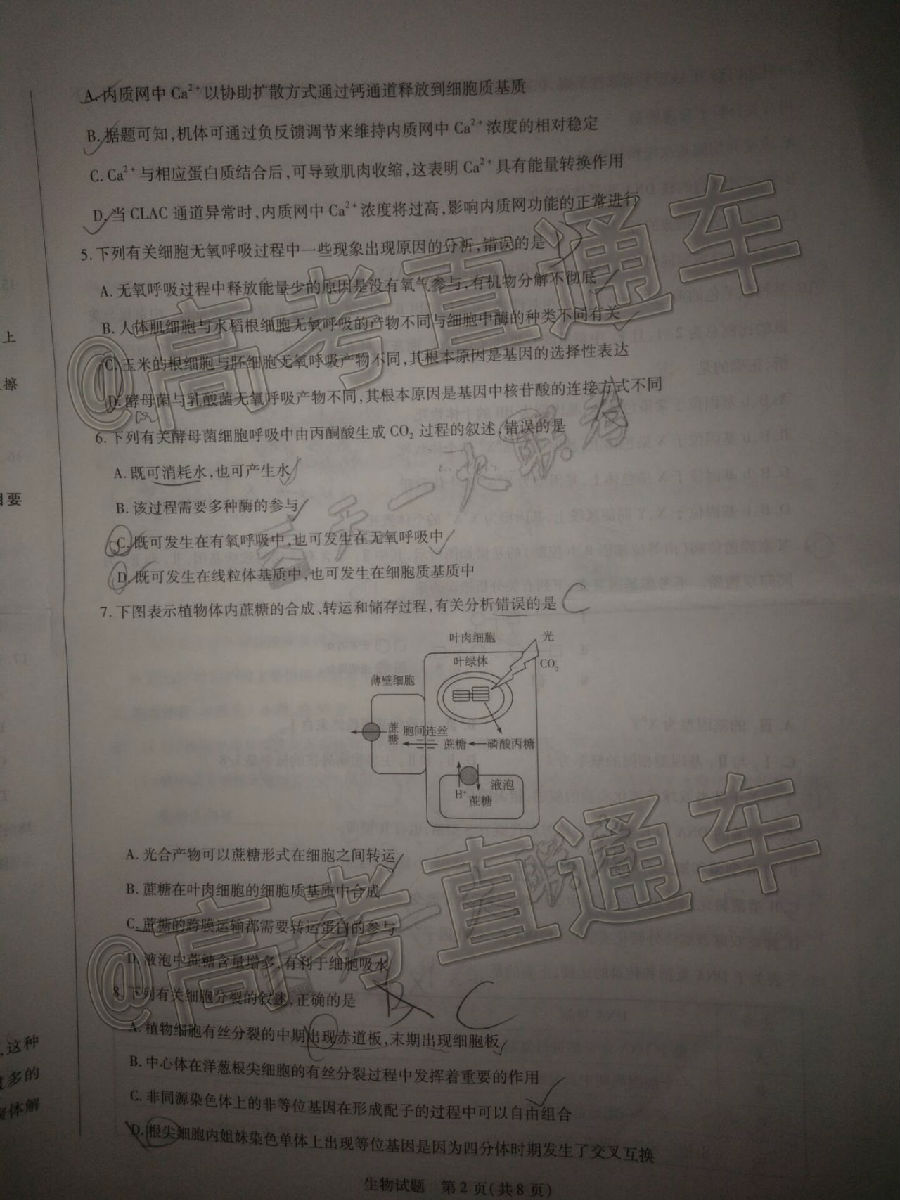 A. 内质网中 Ca²⁺以协助扩散方式通过钙通道释放到细胞质基质
B. 据题可知,机体可通过负反馈调节来维持内质网中 Ca²⁺浓度的相对稳定
C. Ca²⁺与相应蛋白质结合后,可导致肌肉收缩,这表明 Ca²⁺具有能量转换作用
D. 当 CLAC 通道异常时,内质网中 Ca²⁺浓度将过高,影响内质网功能的正常进行
5. 下列有关细胞无氧呼吸过程中一些现象出现原因的分析,错误的是 D
A. 无氧呼吸过程中释放能量少的原因是没有氧气参与,有机物分解不彻底
B. 人体肌细胞与水稻根细胞无氧呼吸的产物不同与细胞中酶的种类不同有关
C. 玉米的根细胞与胚细胞无氧呼吸产物不同,其根本原因是基因的选择性表达
D. 酵母菌与乳酸菌无氧呼吸产物不同,其根本原因是基因中核苷酸的连接方式不同
6. 下列有关酵母菌细胞呼吸中由丙酮酸生成 CO₂ 过程的叙述,错误的是 A
A. 既可消耗水,也可产生水
B. 该过程需要多种酶的参与
C. 既可发生在有氧呼吸中,也可发生在无氧呼吸中
D. 既可发生在线粒体基质中,也可发生在细胞质基质中
7. 下图表示植物体内蔗糖的合成、转运和储存过程,有关分析错误的是 C
叶肉细胞
光
叶绿体
CO₂
薄壁细胞
蔗糖
胞间连丝
蔗糖
磷酸丙糖
液泡
H⁺
蔗糖
A. 光合产物可以蔗糖形式在细胞之间转运
B. 蔗糖在叶肉细胞的细胞质基质中合成
C. 蔗糖的跨膜运输都需要转运蛋白的参与
D. 液泡中蔗糖含量增多,有利于细胞吸水
8. 下列有关细胞分裂的叙述,正确的是 C
A. 植物细胞有丝分裂的中期出现赤道板,末期出现细胞板
B. 中心体在洋葱根尖细胞的有丝分裂过程中发挥着重要的作用
C. 非同源染色体上的非等位基因在形成配子的过程中可以自由组合
D. 根尖细胞内姐妹染色单体上出现等位基因是因为四分体时期发生了交叉互换
生物试题 第 2 页(共 8 页)
@高考直通车
@高考直通车
上
擦
目要
,这种
多的
体解